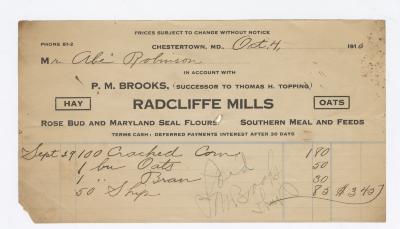 PRICES SUBJECT TO CHANGE WITHOUT NOTICE
PHONE 81-2 CHESTERTOWN, MD., Oct. 4, 191
Mr Abe Robinson
IN ACCOUNT WITH
P. M. BROOKS, (SUCCESSOR TO THOMAS H. TOPPING)
HAY RADCLIFFE MILLS OATS
ROSE BUD AND MARYLAND SEAL FLOURS. SOUTHERN MEAL AND FEEDS
TERMS CASH: DEFERRED PAYMENTS INTEREST AFTER 30 DAYS
Sept 29 100 Cracked Corn 180
1 bu Oats 50
1 " Bran 30
50 Ship 85 $3.45
Paid
P M Brooks